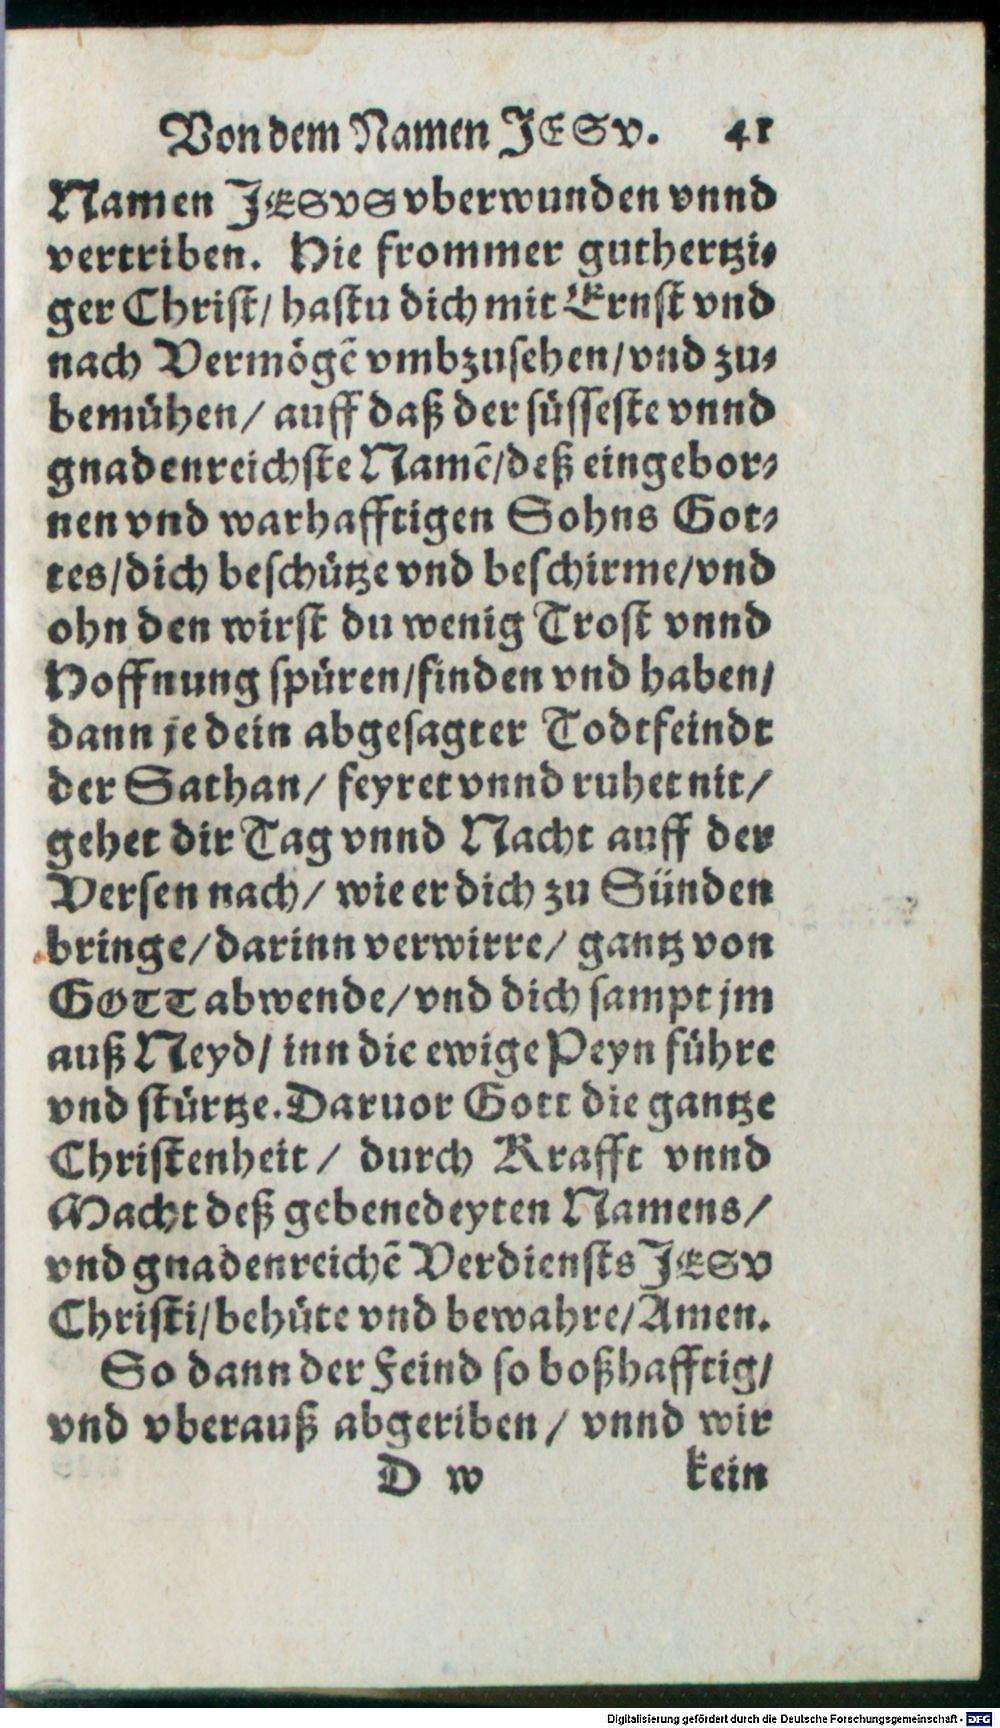 Von dem Namen JESv. 41
Namen JESVS vberwunden vnnd
vertriben. Hie frommer guthertzi-
ger Christ/ hastu dich mit Ernst vnd
nach Vermögẽ vmbzusehen/vnd zu-
bemühen/ auff daß der süsseste vnnd
gnadenreichste Namẽ/deß eingebor-
nen vnd warhafftigen Sohns Got-
tes/dich beschütze vnd beschirme/vnd
ohn den wirst du wenig Trost vnnd
Hoffnung spüren/finden vnd haben/
dann je dein abgesagter Todtfeindt
der Sathan/ feyret vnnd ruhet nit/
gehet dir Tag vnnd Nacht auff der
Versen nach/ wie er dich zu Sünden
bringe/darinn verwirre/ gantz von
GOTT abwende/vnd dich sampt jm
auß Neyd/ inn die ewige Peyn führe
vnd stürtze. Daruor Gott die gantze
Christenheit/ durch Krafft vnnd
Macht deß gebenedeyten Namens/
vnd gnadenreichẽ Verdiensts JESV
Christi/behüte vnd bewahre/Amen.
So dann der Feind so boßhafftig/
vnd vberauß abgeriben/ vnnd wir
D w kein
Digitalisierung gefördert durch die Deutsche Forschungsgemeinschaft - DFG